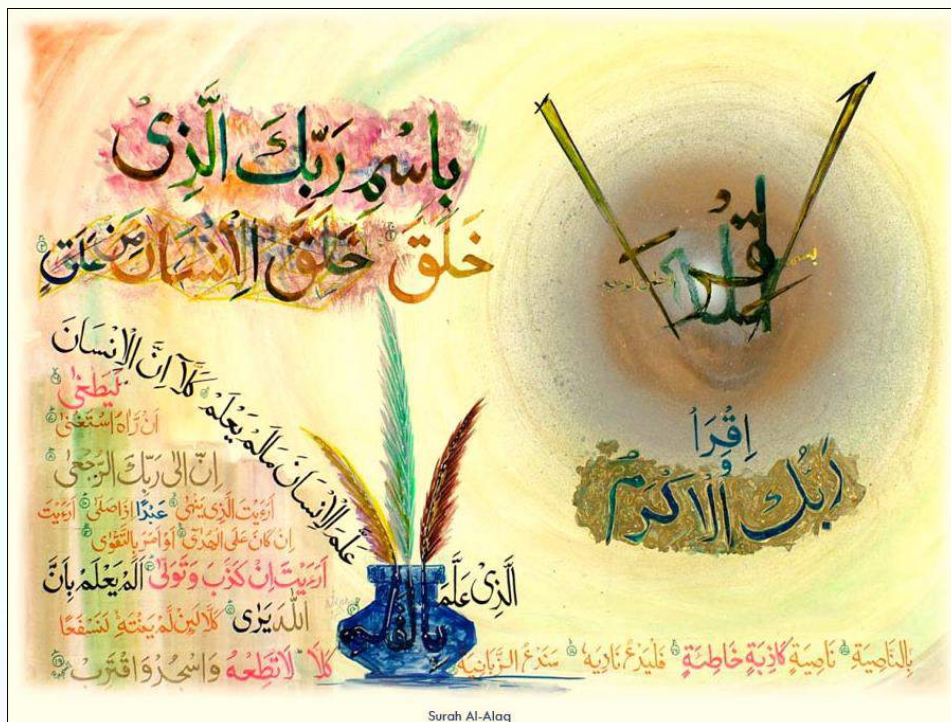 بِاسْمِ رَبِّكَ الَّذِىْ
خَلَقَ خَلَقَ الْاِنْسَانَ مِنْ عَلَقٍ
اِقْرَاْ
وَ
رَبُّكَ الْاَكْرَمُ
الَّذِىْ عَلَّمَ
بِالْقَلَمِ
عَلَّمَ الْاِنْسَانَ مَالَمْ يَعْلَمْ كَلَّآ اِنَّ الْاِنْسَانَ
لَيَطْغٰى
اَنْ رَّاٰهُ اسْتَغْنٰى
اِنَّ اِلٰى رَبِّكَ الرُّجْعٰى
اَرَءَيْتَ الَّذِىْ يَنْهٰى عَبْدًا اِذَا صَلّٰى اَرَءَيْتَ
اِنْ كَانَ عَلَى الْهُدٰى اَوْ اَمَرَ بِالتَّقْوٰى
اَرَءَيْتَ اِنْ كَذَّبَ وَتَوَلّٰى اَلَمْ يَعْلَمْ بِاَنَّ
اللّٰهَ يَرٰى كَلَّا لَىِٕنْ لَّمْ يَنْتَهِ لَنَسْفَعًا
بِالنَّاصِيَةِ نَاصِيَةٍ كَاذِبَةٍ خَاطِئَةٍ فَلْيَدْعُ نَادِيَهٗ سَنَدْعُ الزَّبَانِيَةَ
كَلَّا لَا تُطِعْهُ وَاسْجُدْ وَاقْتَرِبْ
Surah Al-Alaq